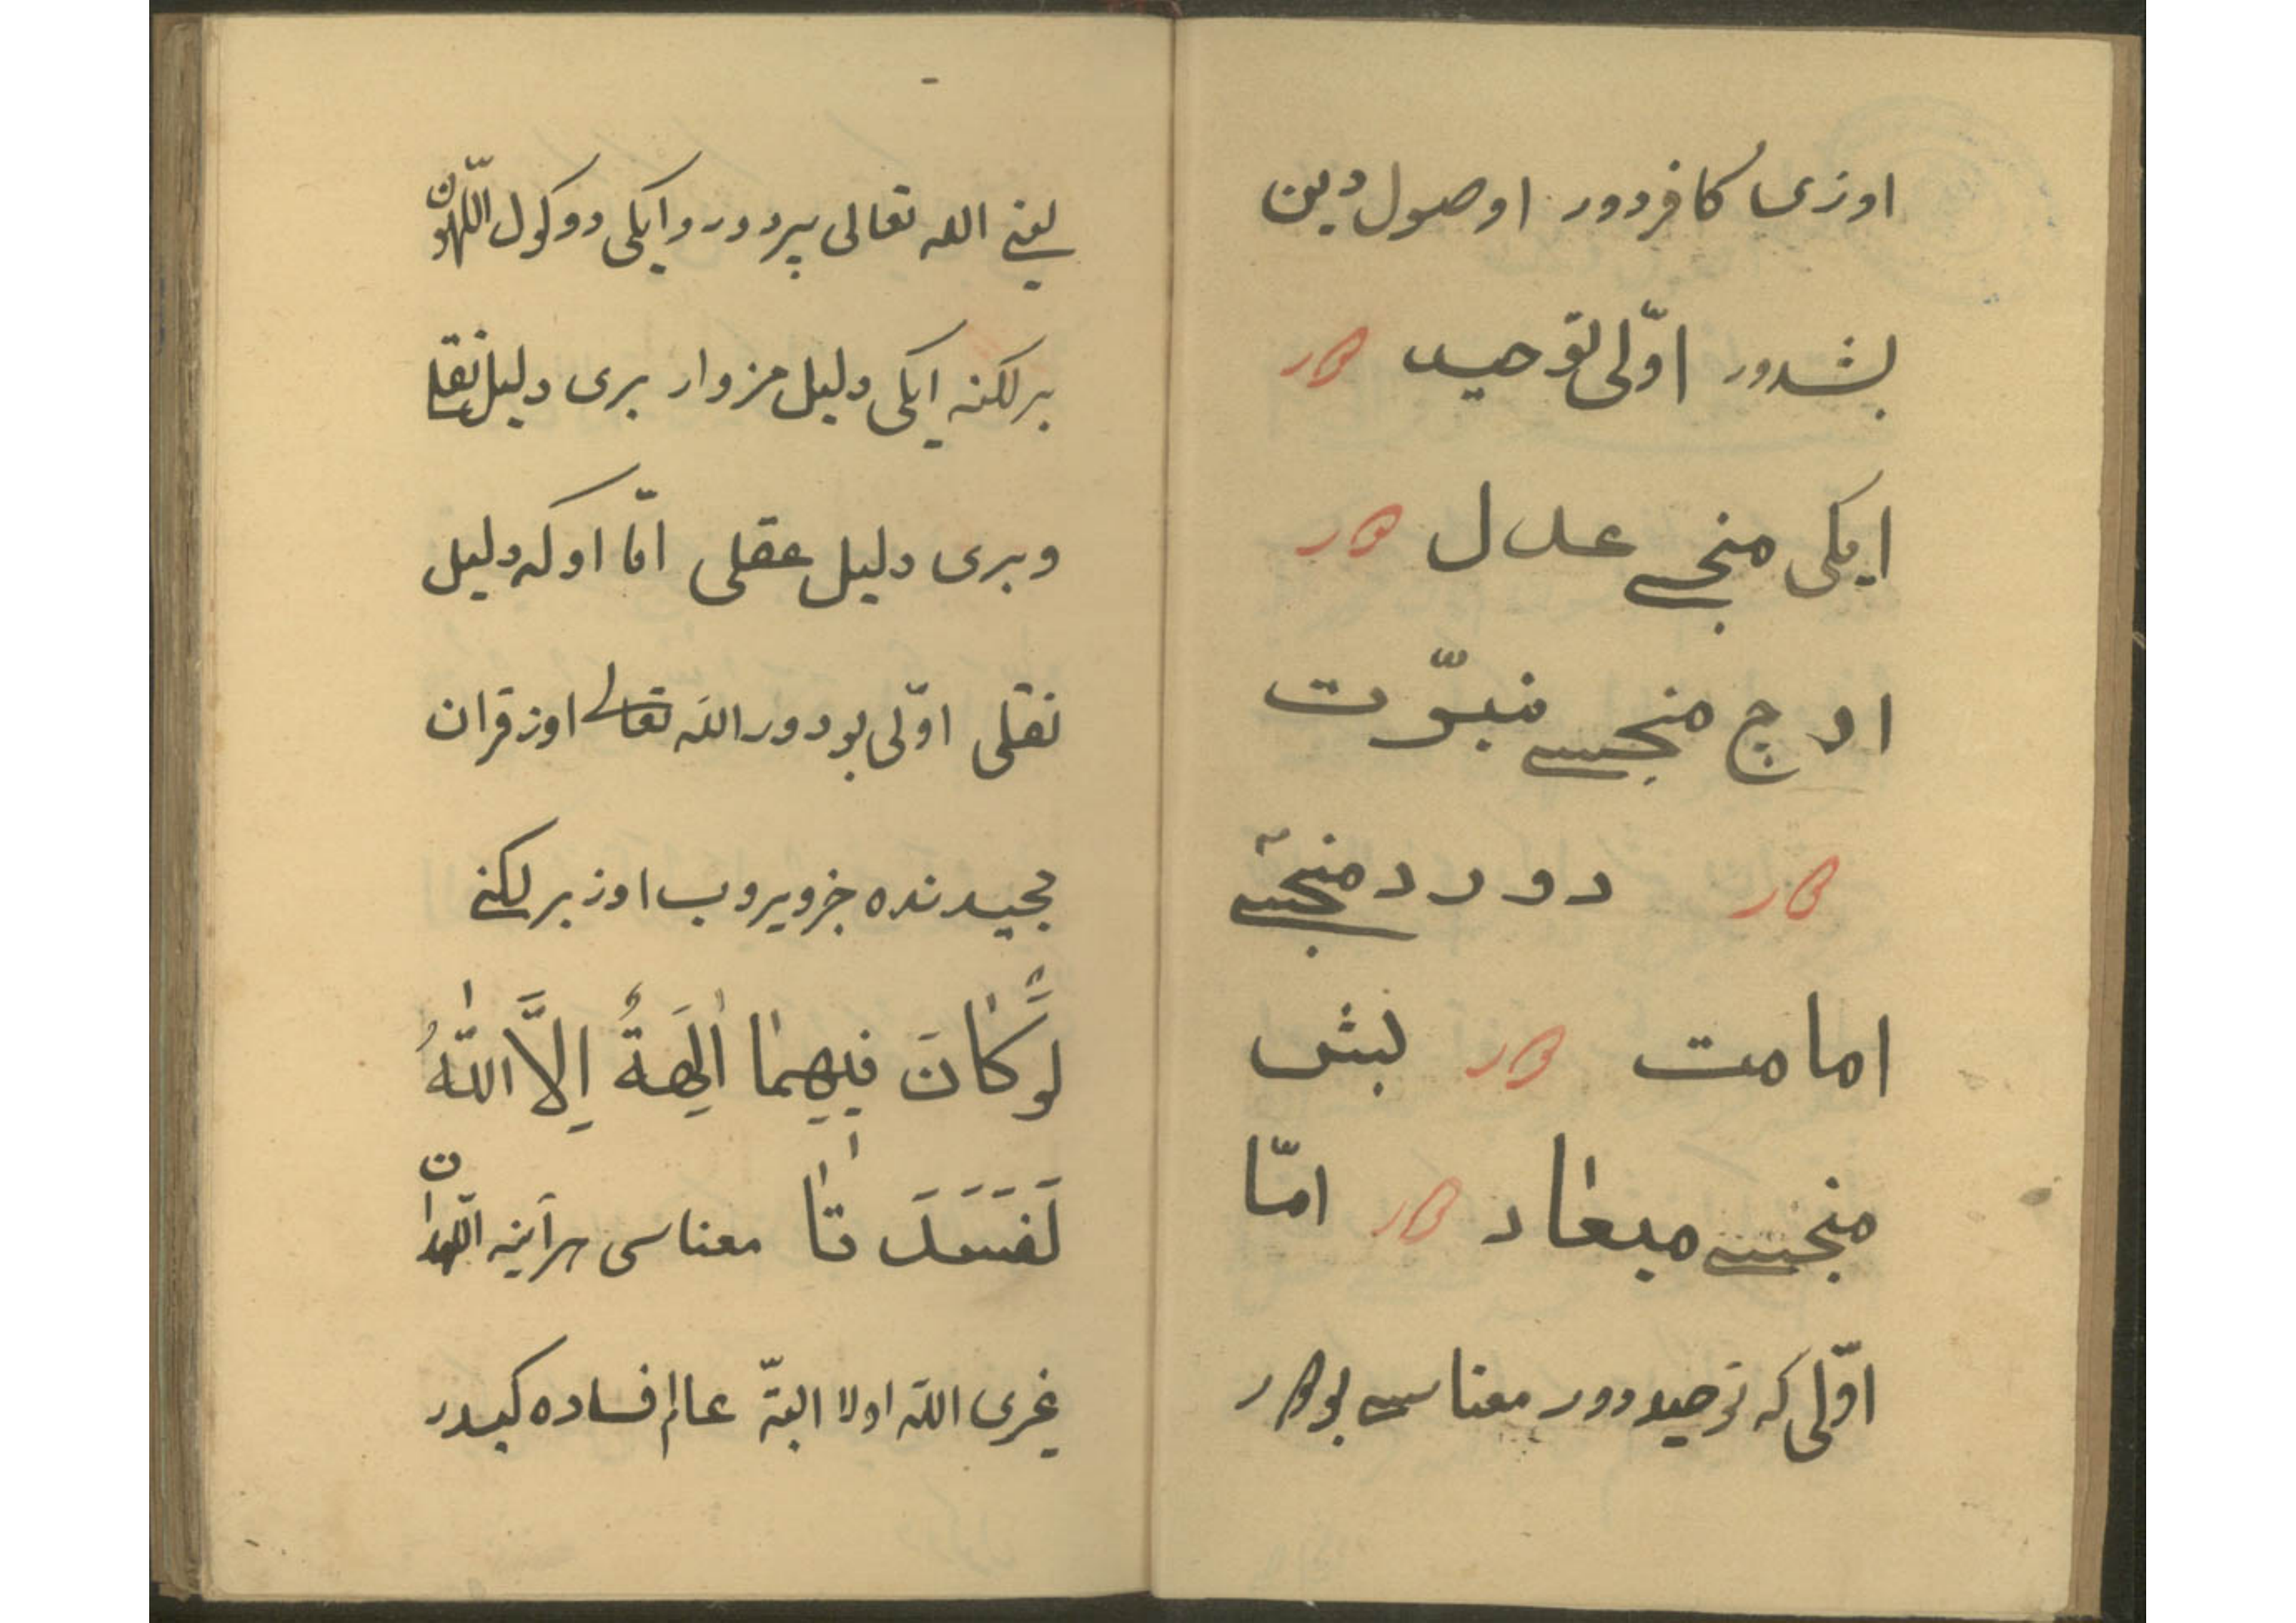 اوزی کافردور اوصول دین
بشدور اوّلی توحید دور
ایکی منجی عدل دور
اوچ منجسی نبوّت
دور دورد منجسی
امامت دور بش
منجسی میعاد دور امّا
اوّلی که توحیددور معناسی بودور
یعنی الله تعالی بیردور و ایکی دوکول اللهون
برلکنه ایکی دلیلمز وار بری دلیل نقلی
و بری دلیل عقلی امّا اوکه دلیل
نقلی اوّلی بودور الله تعالی اوز قران
مجیدنده خزویروب اوز برلکنی
لَوْ کَانَ فِیهِمَا اٰلِهَةٌ اِلاَّ اللّٰهُ
لَفَسَدَتَا معناسی هرآینه اللهدان
غیری الله اولا البتّه عالم فساده کیدر